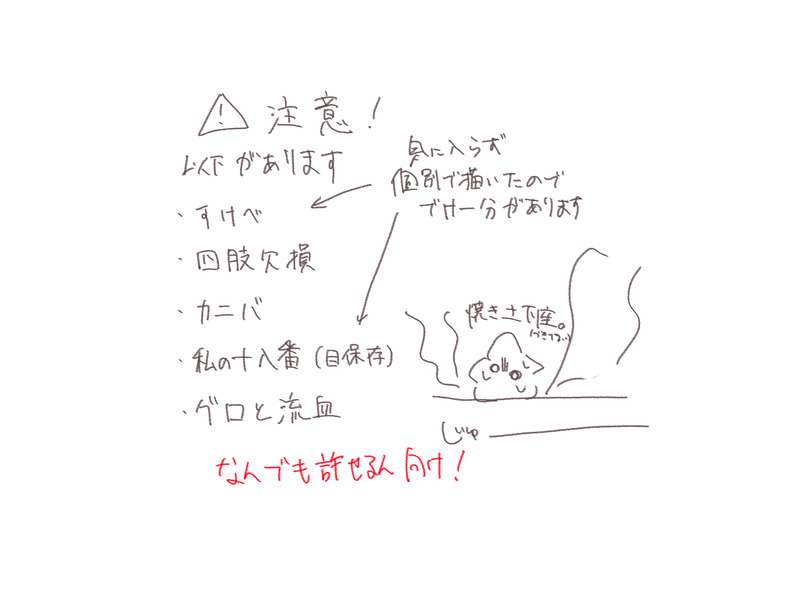 ⚠ 注意!
以下があります
・すけべ
・四肢欠損
・カニバ
・私の十八番(目保存)
・ゲロと流血
気に入らず
個別で描いたので
でけー分があります
焼き土下座。
じゅ
なんでも許せるん向け!